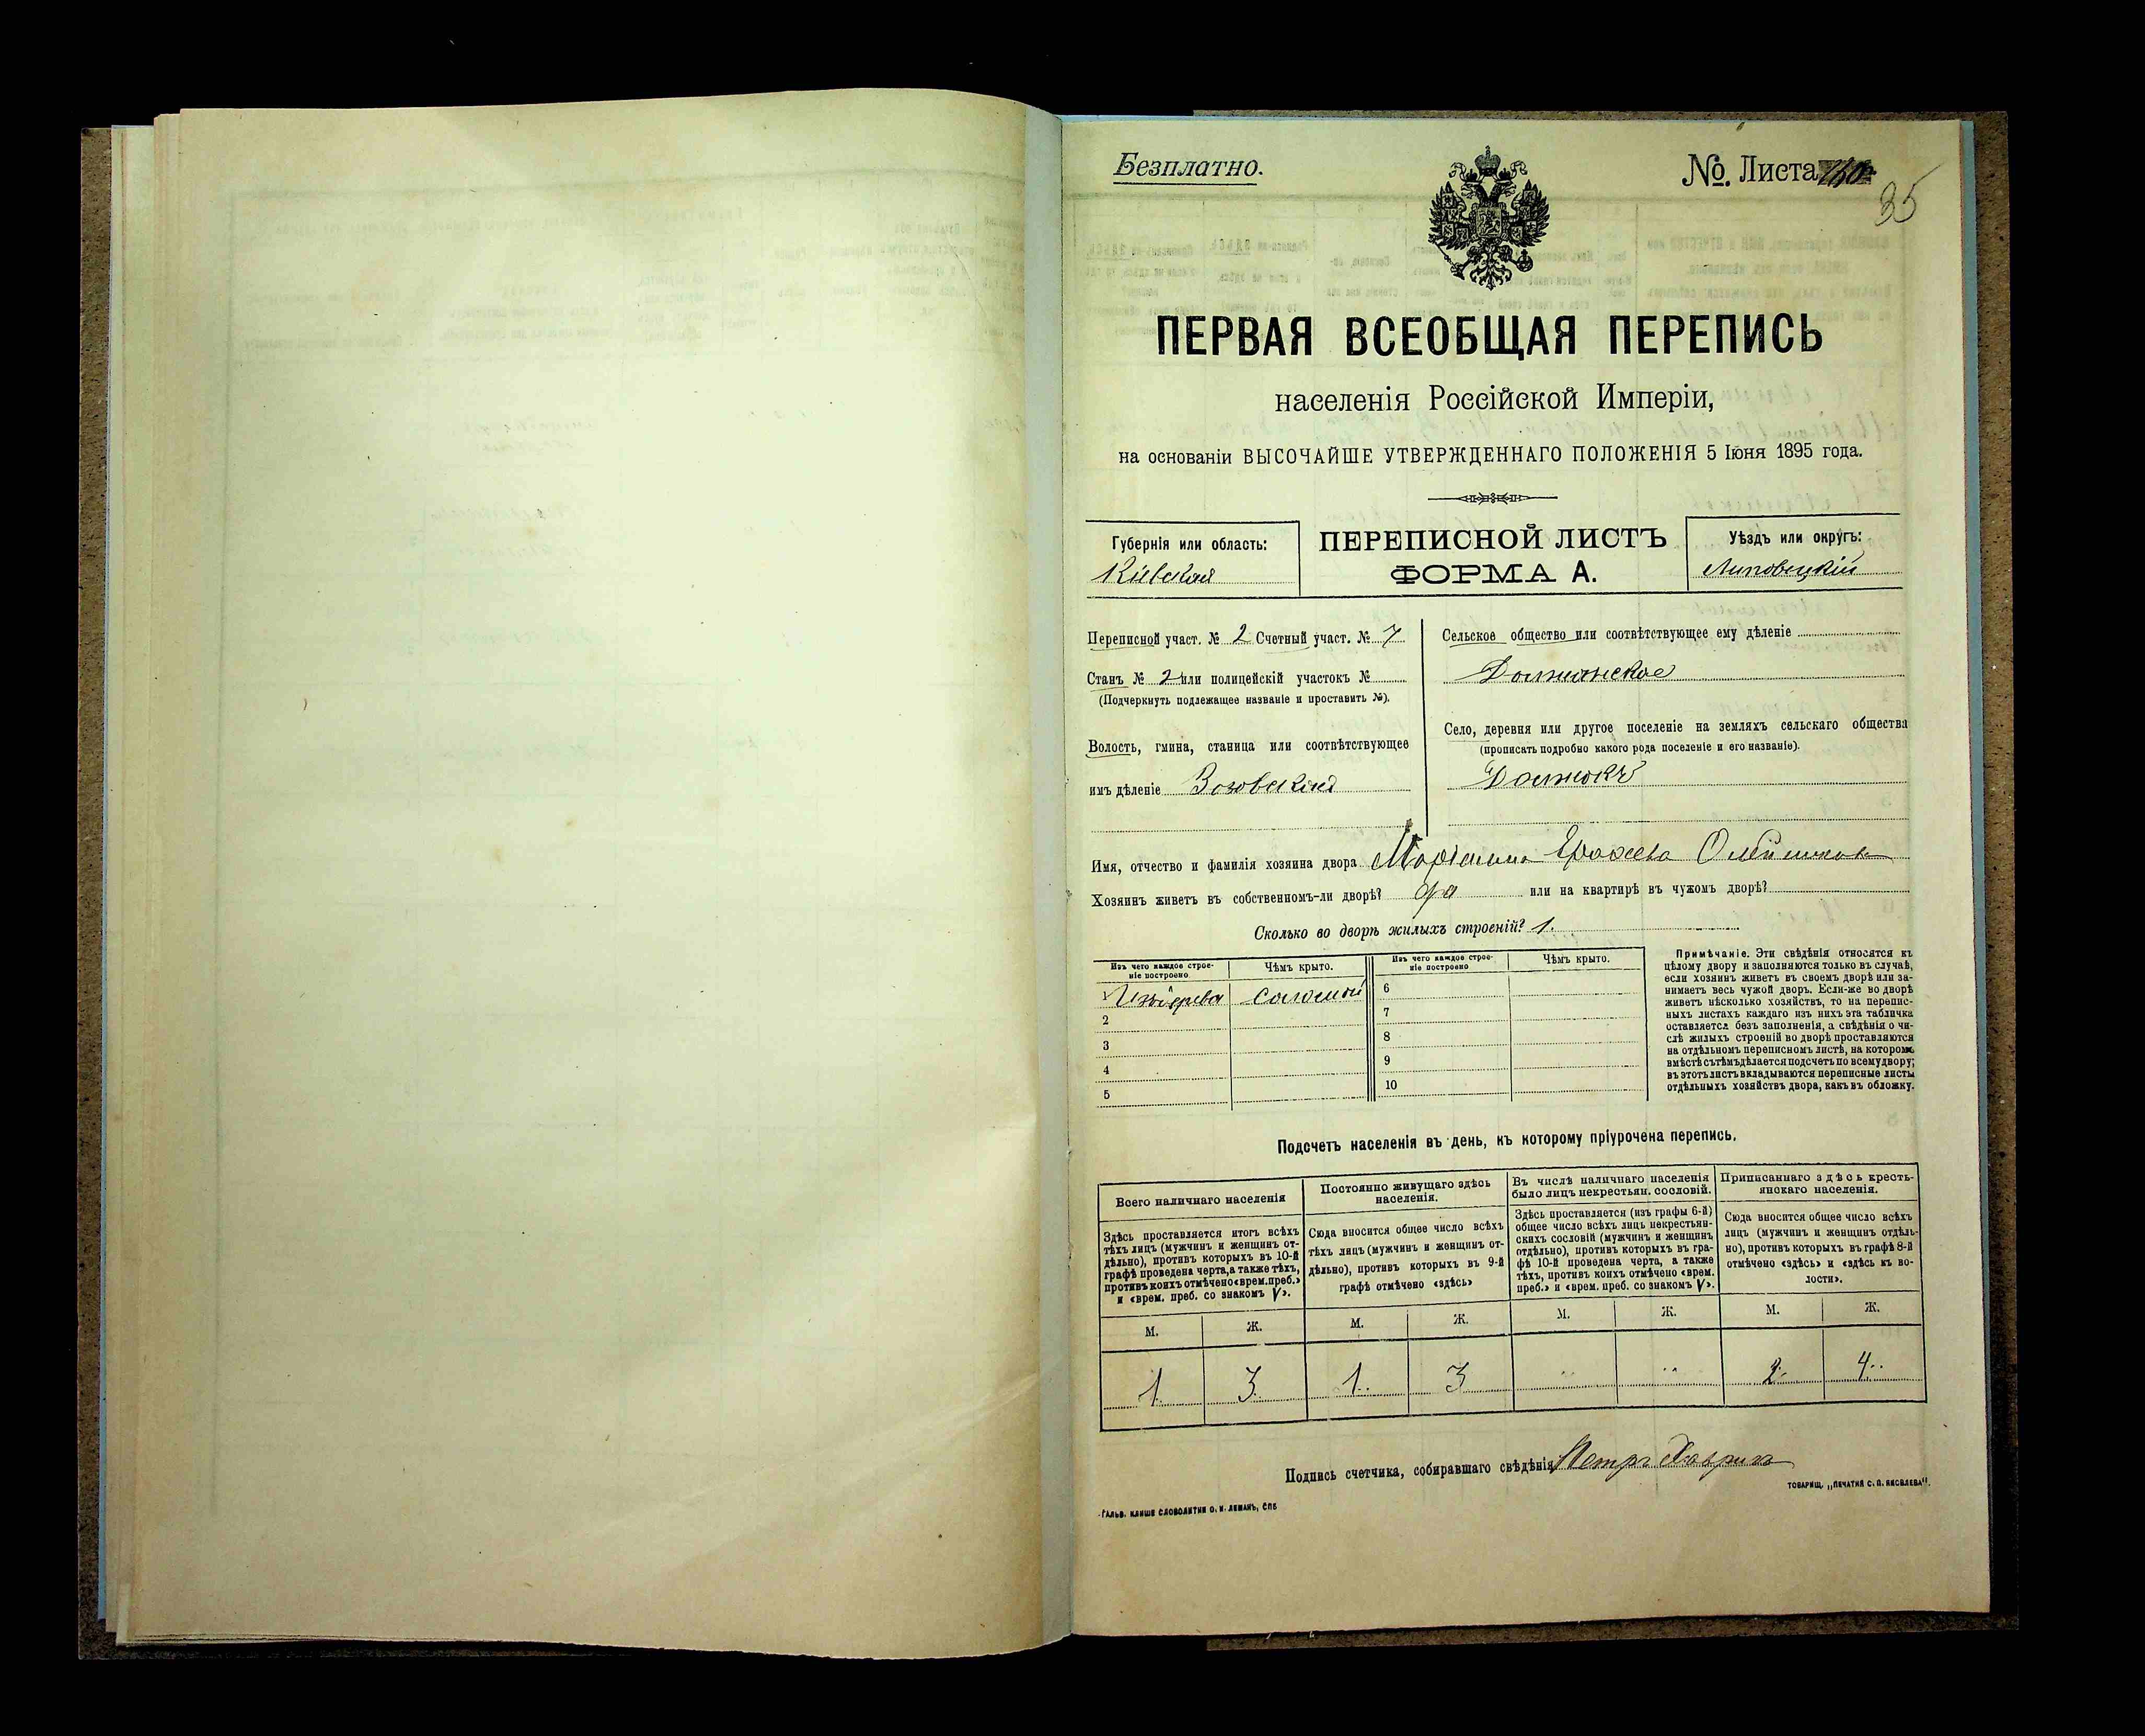 Безплатно.
№. Листа
35
ПЕРВАЯ ВСЕОБЩАЯ ПЕРЕПИСЬ
населенія Россійской Имперіи,
на основаніи ВЫСОЧАЙШЕ УТВЕРЖДЕННАГО ПОЛОЖЕНІЯ 5 Іюня 1895 года.
Губернія или область:
Кіевская
ПЕРЕПИСНОЙ ЛИСТЪ
ФОРМА А.
Уѣздъ или округъ:
Липовецкій
Переписной участ. № 2 Счетный участ. № 7
Станъ № 2 или полицейскій участокъ №
(Подчеркнуть подлежащее названіе и проставить №).
Волость, гмина, станица или соотвѣтствующее
имъ дѣленіе Зозовская
Сельское общество или соотвѣтствующее ему дѣленіе
Должанское
Село, деревня или другое поселеніе на земляхъ сельскаго общества
(прописать подробно какого рода поселеніе и его названіе).
Должокъ
Имя, отчество и фамилія хозяина двора Маріанна
Хозяинъ живетъ въ собственномъ-ли дворѣ? да или на квартирѣ въ чужомъ дворѣ?
Сколько во дворѣ жилыхъ строеній? 1.
Изъ чего каждое строе-
ніе построено
Чѣмъ крыто.
Изъ чего каждое строе-
ніе построено
Чѣмъ крыто.
1 Изъ дерева соломой 6
2 7
3 8
4 9
5 10
Примѣчаніе. Эти свѣдѣнія относятся къ
цѣлому двору и заполняются только въ случаѣ,
если хозяинъ живетъ въ своемъ дворѣ или за-
нимаетъ весь чужой дворъ. Если-же во дворѣ
живетъ нѣсколько хозяйствъ, то на перепис-
ныхъ листахъ каждаго изъ нихъ эта табличка
оставляется безъ заполненія, а свѣдѣнія о чи-
слѣ жилыхъ строеній во дворѣ проставляются
на отдѣльномъ переписномъ листѣ, на которомъ
вмѣстѣ съ тѣмъ дѣлается подсчетъ по всему двору;
въ этотъ листъ вкладываются переписные листы
отдѣльныхъ хозяйствъ двора, какъ въ обложку.
Подсчетъ населенія въ день, къ которому пріурочена перепись.
Всего наличнаго населенія
Здѣсь проставляется итогъ всѣхъ
тѣхъ лицъ (мужчинъ и женщинъ от-
дѣльно), противъ которыхъ въ 10-й
графѣ проведена черта, а также тѣхъ,
противъ коихъ отмѣчено «врем. преб.»
и «врем. преб. со знакомъ V».
Постоянно живущаго здѣсь
населенія.
Сюда вносится общее число всѣхъ
тѣхъ лицъ (мужчинъ и женщинъ от-
дѣльно), противъ которыхъ въ 9-й
графѣ отмѣчено «здѣсь»
Въ числѣ наличнаго населенія
было лицъ некрестьян. сословій.
Здѣсь проставляется (изъ графы 6-й)
общее число всѣхъ лицъ некрестьян-
скихъ сословій (мужчинъ и женщинъ
отдѣльно), противъ которыхъ въ гра-
фѣ 10-й проведена черта, а также
тѣхъ, противъ коихъ отмѣчено «врем.
преб.» и «врем. преб. со знакомъ V».
Приписаннаго здѣсь кресть-
янскаго населенія.
Сюда вносится общее число всѣхъ
лицъ (мужчинъ и женщинъ отдѣль-
но), противъ которыхъ въ графѣ 8-й
отмѣчено «здѣсь» и «здѣсь къ во-
лости».
М. Ж. М. Ж. М. Ж. М. Ж.
1 3 1. 3 .. .. 2. 4..
Подпись счетчика, собиравшаго свѣдѣнія Петръ
ГАЛЬВ. КЛИШЕ СЛОВОЛИТНИ О. И. ЛЕМАНЪ, СПБ
ТОВАРИЩ. „ПЕЧАТНЯ С. П. ЯКОВЛЕВА".